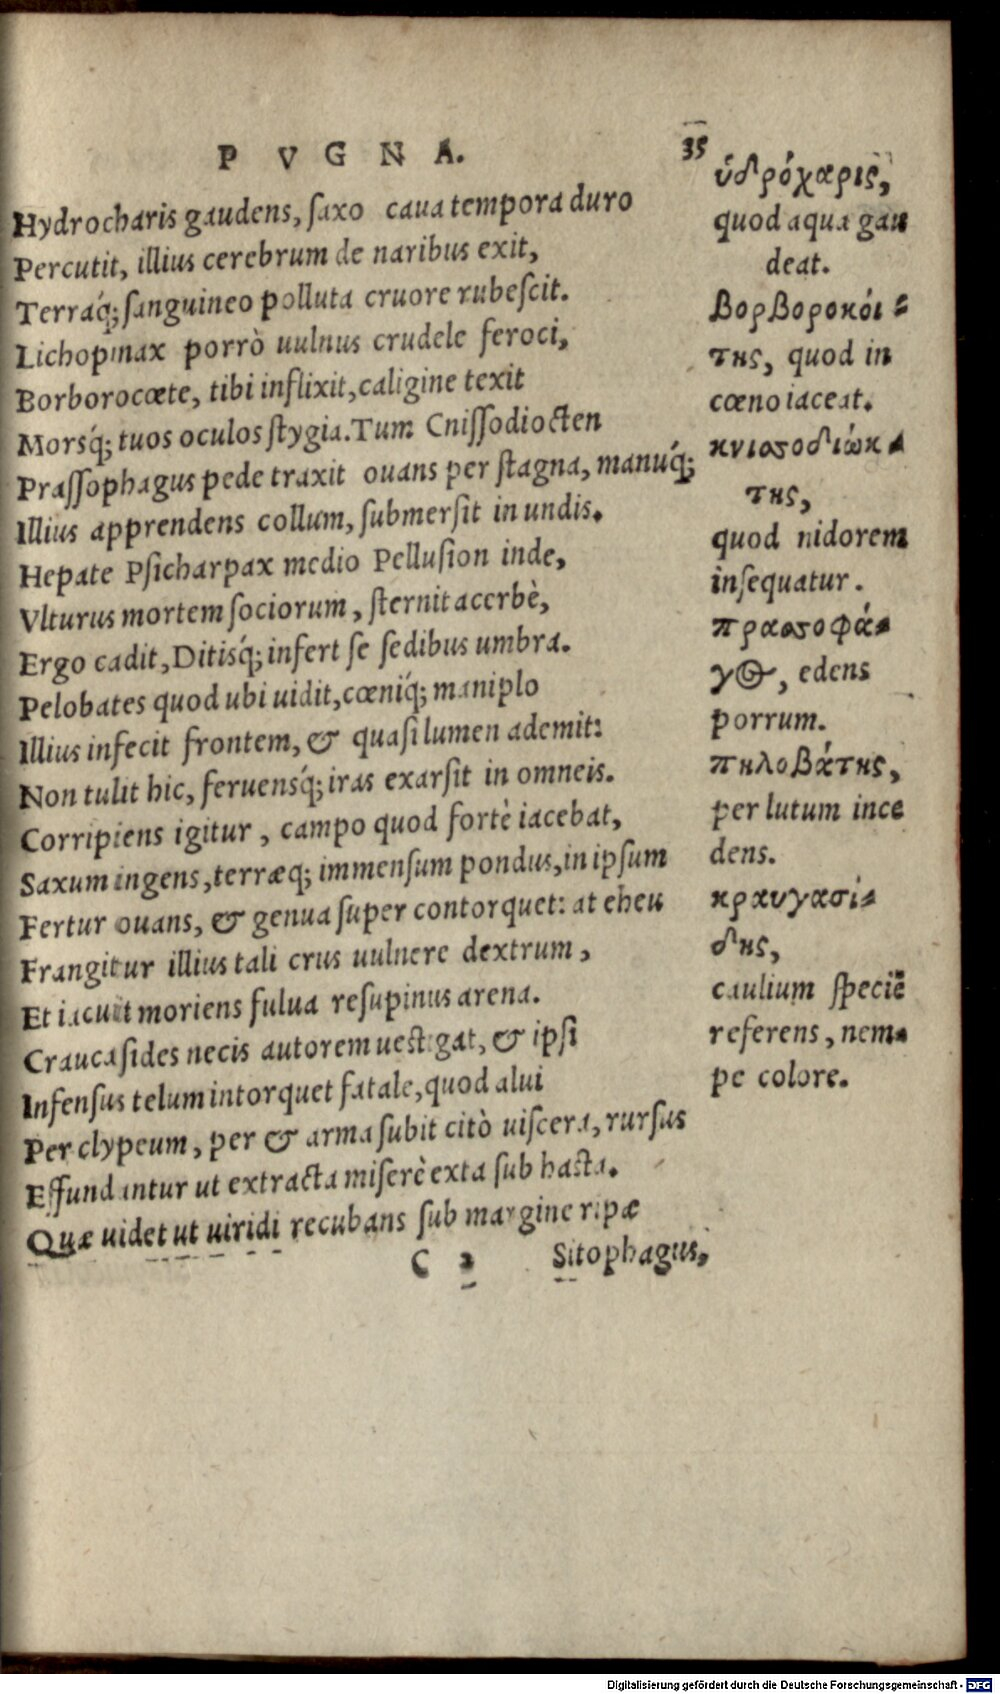 PVGNA. 35
Hydrocharis gaudens, ſaxo caua tempora duro
Percutit, illius cerebrum de naribus exit,
Terráq́; ſanguineo polluta cruore rubeſcit.
Lichopinax porrò uulnus crudele feroci,
Borborocœte, tibi inflixit, caligine texit
Morsq́; tuos oculos ſtygia. Tum Cniſſodiocten
Praſſophagus pede traxit ouans per ſtagna, manuq́;
Illius apprendens collum, ſubmerſit in undis.
Hepate Pſicharpax medio Pelluſion inde,
Vlturus mortem ſociorum, ſternit acerbè,
Ergo cadit, Ditisq́; infert ſe ſedibus umbra.
Pelobates quod ubi uidit, cœniq́; maniplo
Illius infecit frontem, & quaſi lumen ademit:
Non tulit hic, feruensq́; iras exarſit in omneis.
Corripiens igitur, campo quod fortè iacebat,
Saxum ingens, terræq; immenſum pondus, in ipſum
Fertur ouans, & genua ſuper contorquet: at eheu
Frangitur illius tali crus uulnere dextrum,
Et iacuit moriens fulua reſupinus arena.
Craucaſides necis autorem ueſtigat, & ipſi
Infenſus telum intorquet fatale, quod alui
Per clypeum, per & arma ſubit citò uiſcera, rurſus
Effundantur ut extracta miſerè exta ſub haſta.
Quæ uidet ut uiridi recubans ſub margine ripæ
C 2 Sitophagus,
ὑδρόχαρις,
quod aqua gau
deat.
βορβοροκόι-
της, quod in
cœno iaceat.
κνισσοδιώκ-
της,
quod nidorem
inſequatur.
πρασσοφά-
γος, edens
porrum.
πηλοβάτης,
per lutum ince
dens.
κραυγασί-
δης,
caulium ſpeciē
referens, nem-
pe colore.
Digitalisierung gefördert durch die Deutsche Forschungsgemeinschaft - DFG